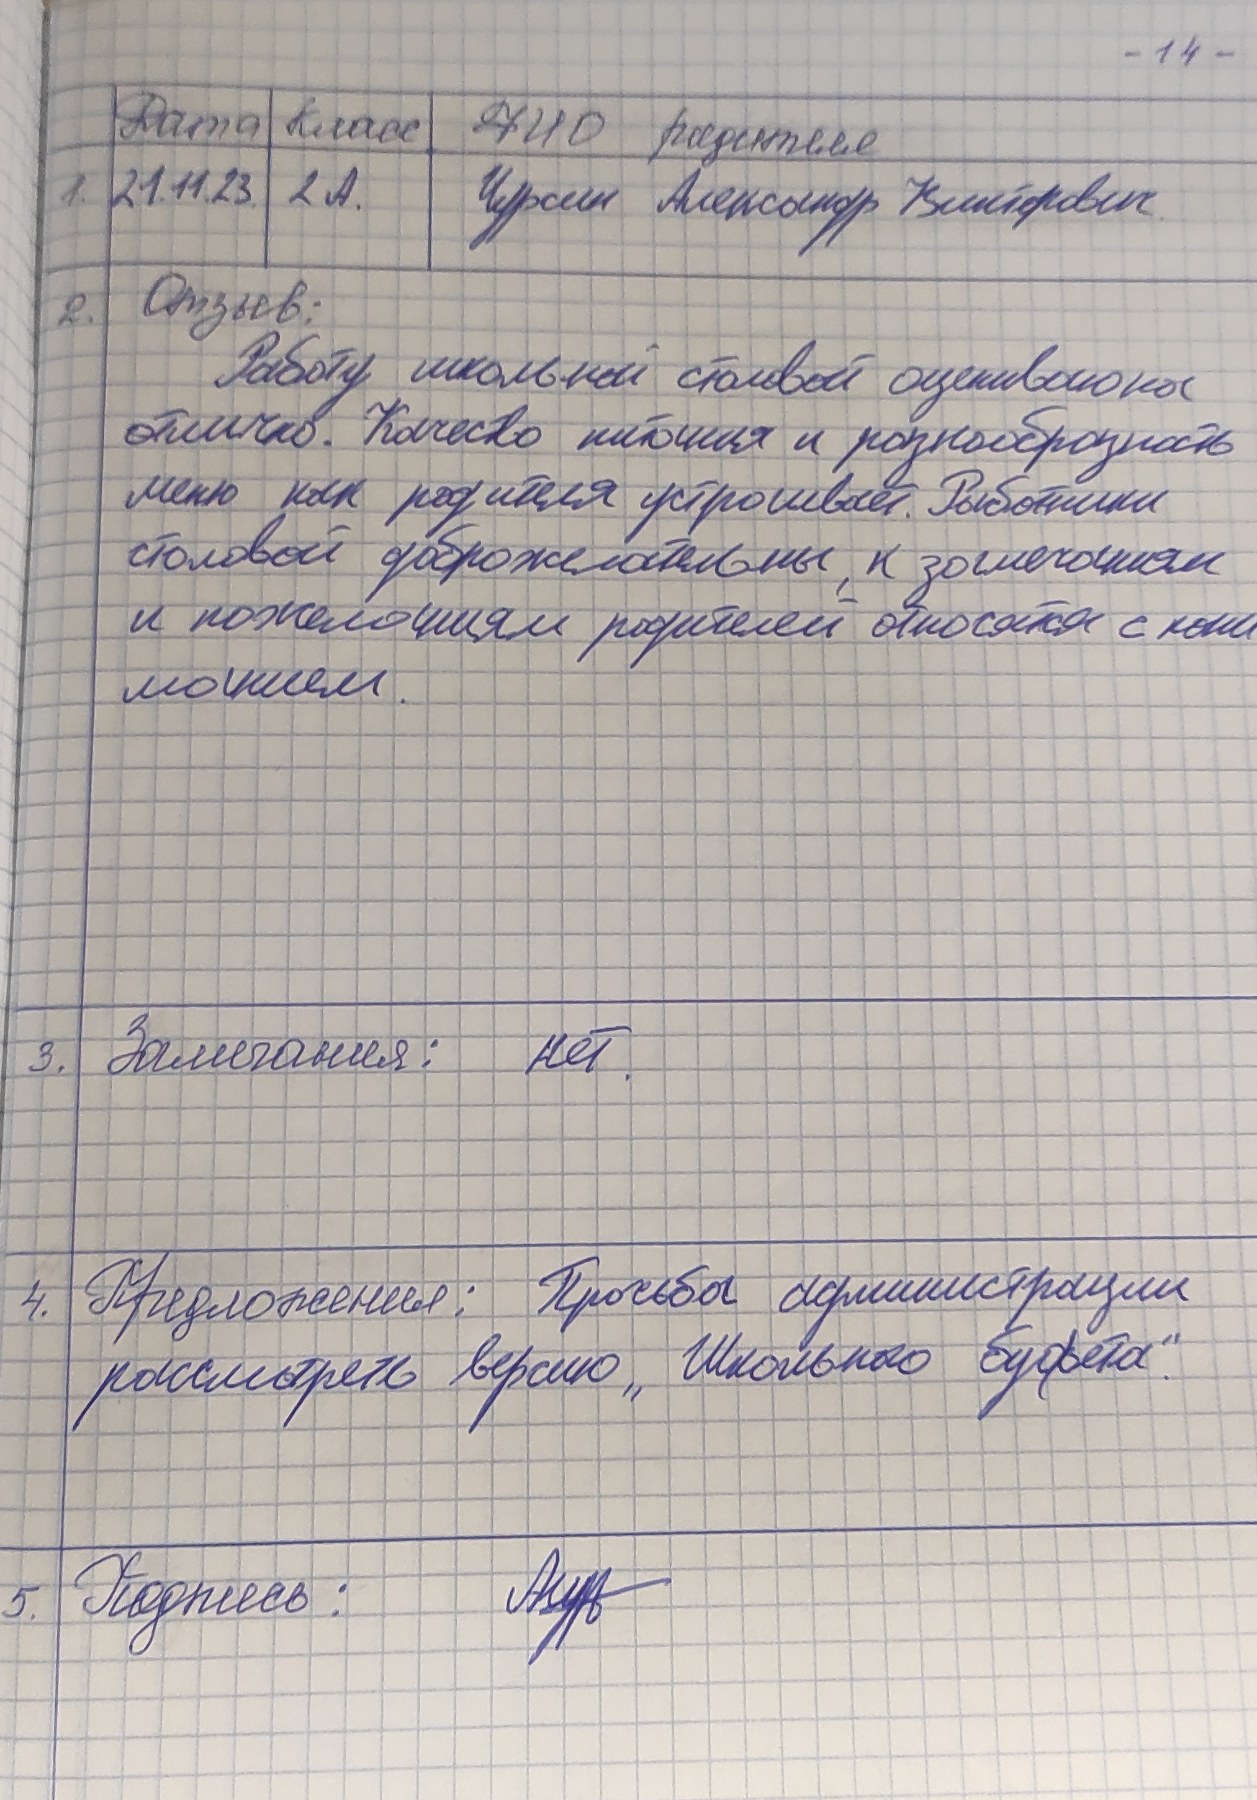 - 14 -
Дата Класс ФИО родителя
1. 21.11.23. 2 А. Александр Викторович
2. Отзыв:
Работу школьной столовой оцениваю на
отлично. Качесво питания и разнообразность
меню как родителя устраивает. Работники
столовой доброжелательны, к замечаниям
и пожеланиям родителей относятся с пони
манием.
3. Замечания: нет.
4. Предложения: Просьба администрации
рассмотреть версию „Школьного буфета“.
5. Подпись: